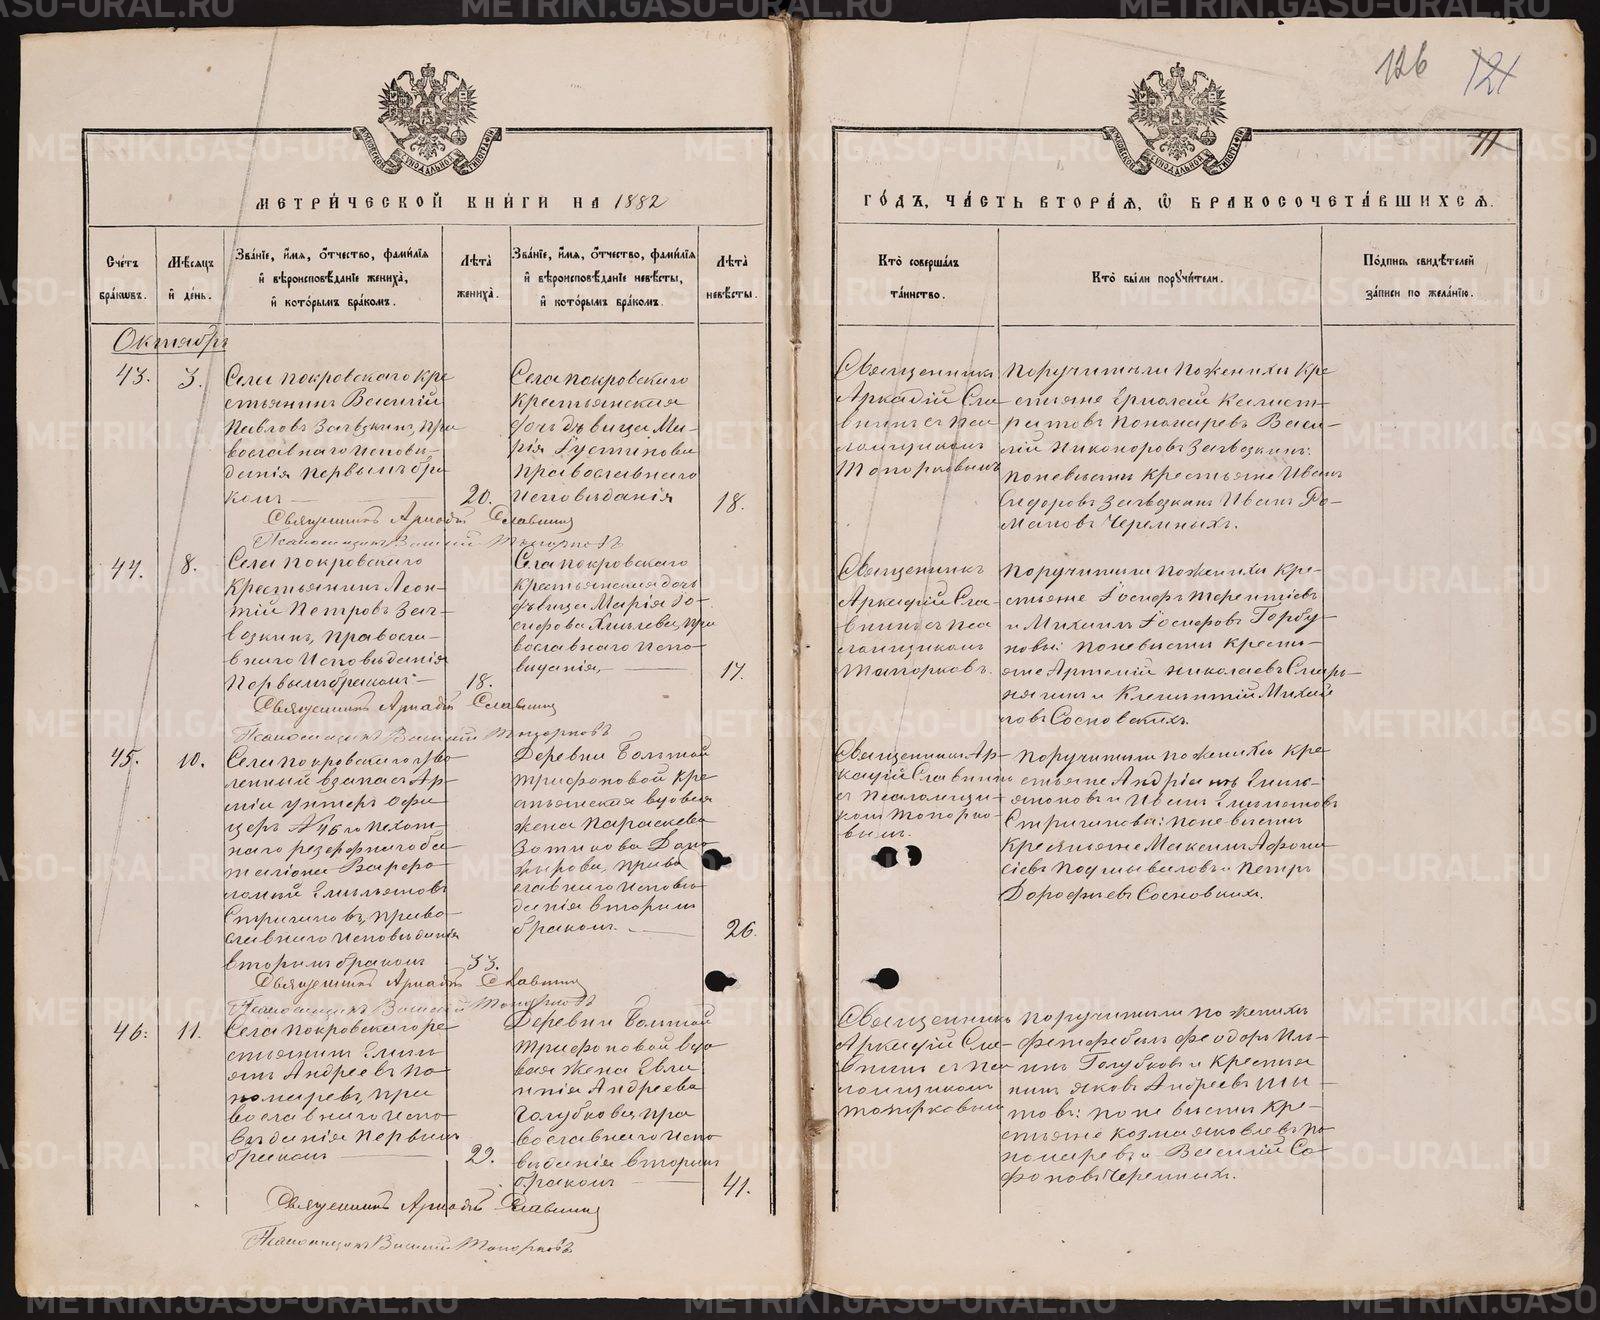 126 121
71
МЕТРИ́ЧЕСКОЙ КНИ́ГИ НА 1882
ГО́ДЪ, ЧА́СТЬ ВТОРА́Я, Ѡ БРАКОСОЧЕТА́ВШИХСЯ.
Сче́тъ бра́кωвъ.
Мѣ́сяцъ и҆ де́нь.
Зва́нїе, и҆́мя, ѻ҆́тчество, фами́лїя и҆ вѣроисповѣ́данїе жениха̀, и҆ кото́рымъ бра́комъ.
Лѣ́та жениха̀.
Зва́нїе, и҆́мя, ѻ҆́тчество, фами́лїя и҆ вѣроисповѣ́данїе невѣ́сты, и҆ кото́рымъ бра́комъ.
Лѣ́та невѣ́сты.
Кто̀ соверша́лъ та́инство.
Кто̀ бы́ли порꙋчи́тели.
По́дпись свидѣ́телей за́писи по жела́нїю.
Октябрь
43.
3.
Села Покровскаго кре
стьянинъ Василій
Павловъ Загвозкинъ, пра
вославнаго исповѣ
данія первымъ бра
комъ
20.
Села Покровскаго
крестьянская
дочь дѣвица Ма
рія Іустинова
православнаго
исповѣданія
18.
Священникъ
Аркадій Сла
внинъ съ пса
ломщикомъ
Топорковымъ
Поручители по женихѣ кре
стьяне Ермолай Калист
ратовъ Пономаревъ Васи
лій Никоноровъ Загвозкинъ:
по невѣстѣ крестьяне Иванъ
Сидоровъ Загвозкинъ Иванъ Ро
мановъ Черемныхъ.
Священникъ Аркадій Славнинъ
Псаломщикъ Василій Топорковъ
44.
8.
Села Покровскаго
крестьянинъ Леон
тій Петровъ Заг
возкинъ, правосла
внаго исповѣданія
первымъ бракомъ
18.
Села Покровскаго
крестьянская дочь
дѣвица Марія Іо
сифова Хмылева, пра
вославнаго испо
вѣданія,
17.
Священникъ
Аркадій Сла
внинъ съ пса
ломщикомъ
Топорковъ.
Поручители по женихѣ кре
стьяне Іосифъ Терентіевъ
и Михаилъ Іосифовъ Горбу
новы: по невѣстѣ крестья
яне Артемій Николаевъ Смир
нягинъ и Клементій Михай
ловъ Сосновскихъ.
Священникъ Аркадій Славнинъ
Псаломщикъ Василій Топорковъ
45.
10.
Села Покровскаго уво
ленный въ запасъ Ар
міи унтеръ офи
церъ № 46го пѣхот
наго резервнаго ба
таліона Варфо
ломей Емельяновъ
Стригановъ, право
славнаго исповѣданія
вторымъ бракомъ
33.
Деревни Большой
Трифоновой кре
стьянская вдовая
жена Параскева
Зотикова
православнаго исповѣ
данія вторымъ
бракомъ.
26.
Священникъ Ар
кадій Славнинъ
съ псаломщи
комъ Топорко
вымъ.
Поручители по женихѣ кре
стьяне Андріанъ Емель
яновъ и Иванъ Емельяновъ
Стригановы: по невѣстѣ
крестьяне Максимъ Афона
сіевъ Подшиваловъ и Петръ
Дорофѣевъ Сосновскихъ.
Священникъ Аркадій Славнинъ
Псаломщикъ Василій Топорковъ
46.
11.
Села Покровскаго кре
стьянинъ Емель
янъ Андреевъ По
номаревъ, пра
вославнаго испо
вѣданія первымъ
бракомъ
22.
Деревни Большой
Трифоновой вдо
вая жена Евги
нія Андреева
Голубкова, пра
вославнаго испо
вѣданія вторымъ
бракомъ
41.
Священникъ
Аркадій Сла
внинъ съ пса
ломщикомъ
Топорковымъ
Поручители по женихѣ
фельдфебель Феодоръ Иль
инъ Голубковъ и крестья
нинъ Яковъ Андреевъ Ши
товъ: по невѣстѣ кре
стьяне Козма Яковлевъ По
номаревъ и Василій Са
фоновъ Черемныхъ.
Священникъ Аркадій Славнинъ
Псаломщикъ Василій Топорковъ
METRIKI.GASO-URAL.RU